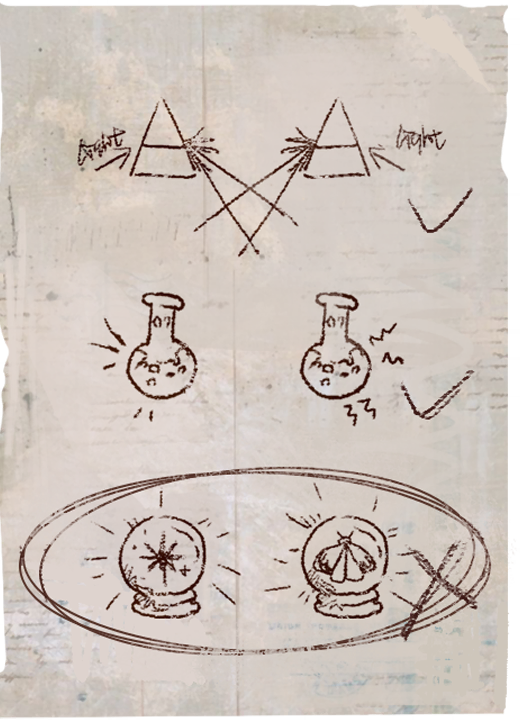 light light